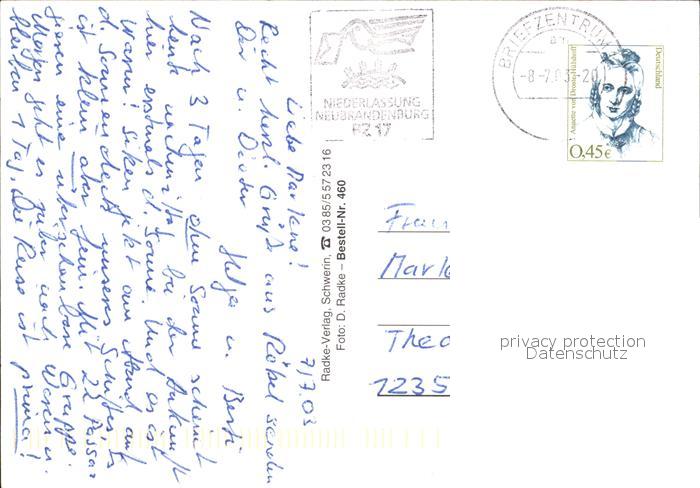 7/7.03
Liebe Marlene!
Recht herzl. Grüße aus Röbel senden
Dir u. Dieter
Helga u. Berti.
Nach 3 Tagen ohne Sonne scheint
heute nachmittag bei der Ankunft
hier erstmals d. Sonne. Und es ist
warm! Sitzen jetzt am Abend auf
d. Sonnendeck unseres Schiffes. Es
ist klein aber fein. Mit 22 Passa-
gieren eine überschaubare Gruppe.
Morgen geht es rüber nach Waren u.
bleiben 1 Tag. Die Reise ist prima!
Radke-Verlag, Schwerin, ☎ 0385/5572316
Foto: D. Radke – Bestell-Nr. 460
NIEDERLASSUNG
NEUBRANDENBURG
BZ 17
BRIEFZENTRUM
-8-7.03-20
Deutschland
Annette von Droste-Hülshoff
0,45€
Frau
Marle
Theo
1235
privacy protection
Datenschutz